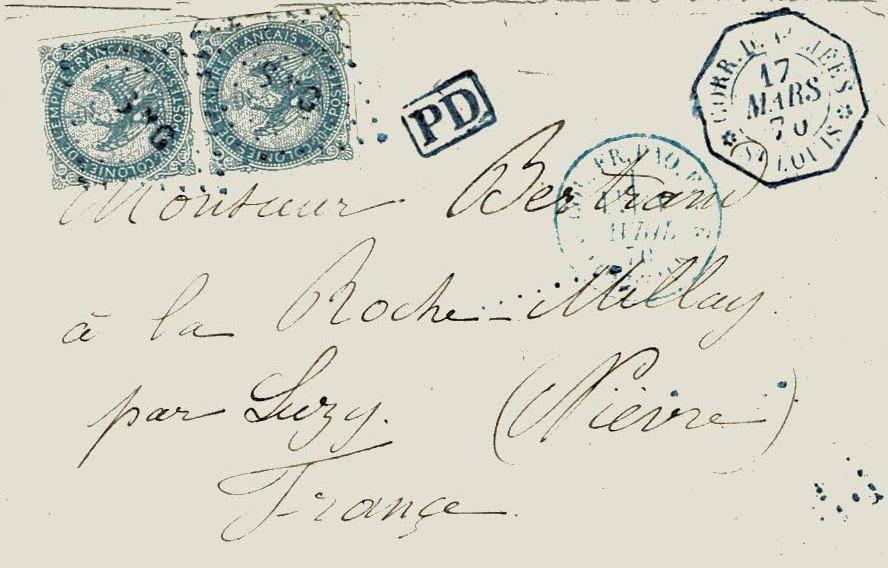 EMPIRE FRANÇAIS
COLONIES
POSTES
SNG
EMPIRE FRANÇAIS
COLONIES
POSTES
SNG
PD
CORR. D. ARMÉES
17
MARS
70
ST LOUIS
AVRIL
70
Monsieur Bertrand
à la Roche-Millay
par Luzy. (Nièvre)
France.